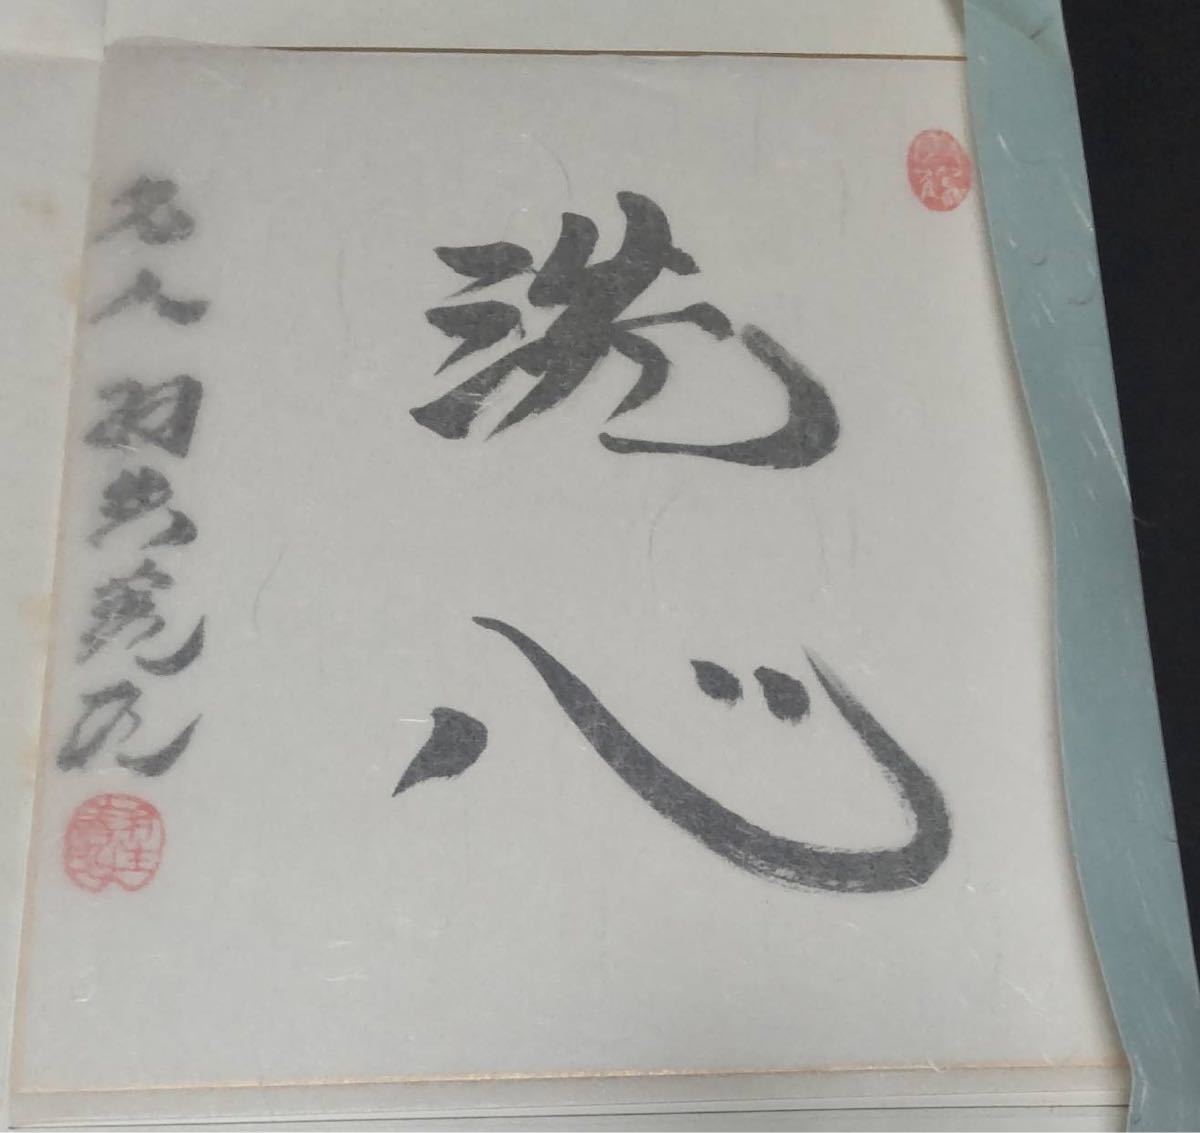 洗心
名人 羽生善治